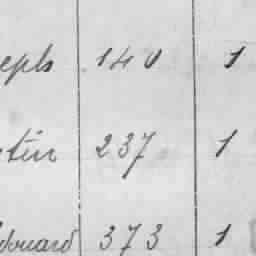 eph 140 1
stin 237 1
douard 373 1